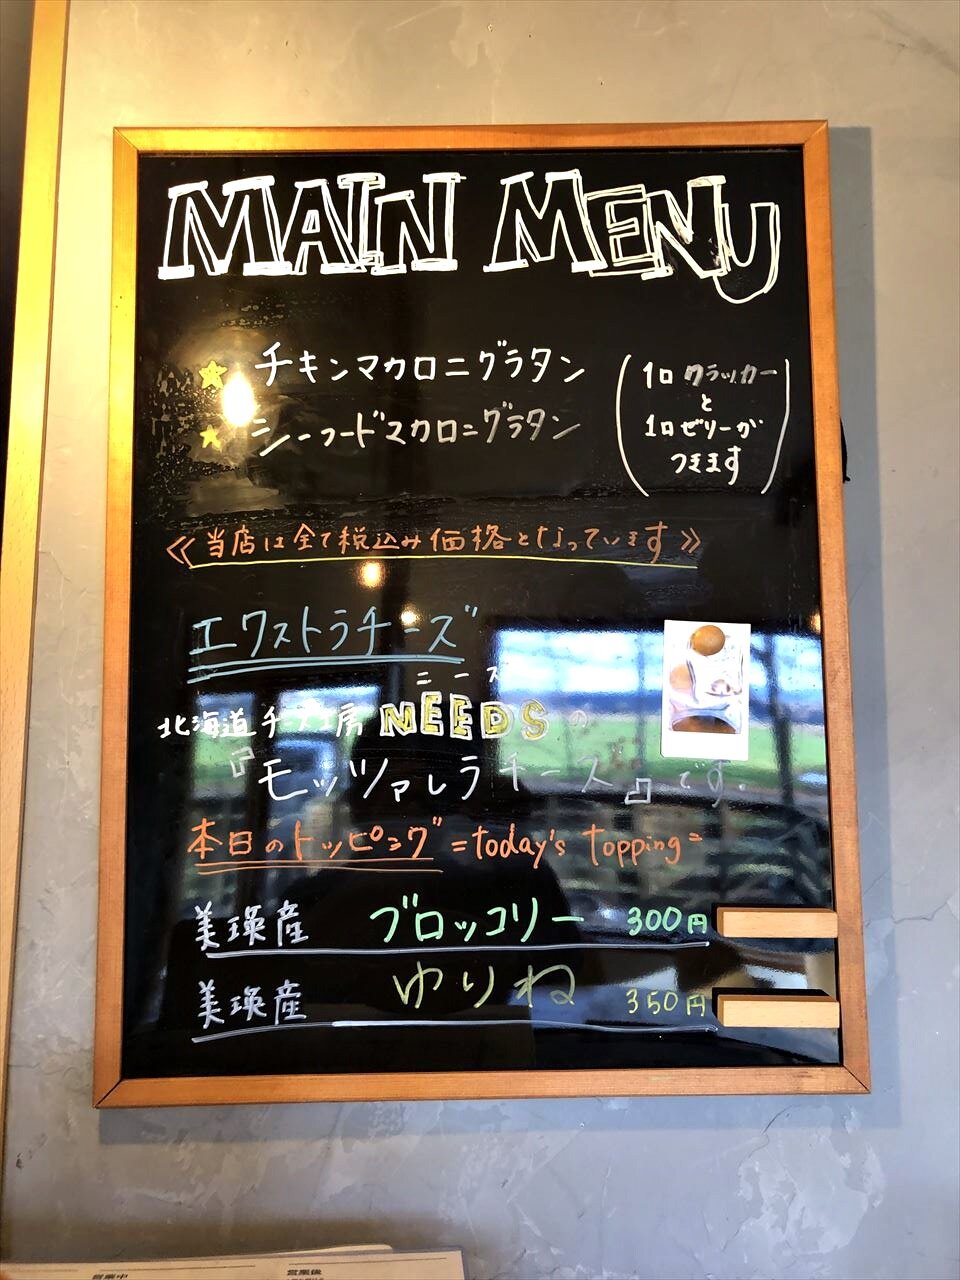 MAIN MENU
★ チキンマカロニグラタン
★ シーフードマカロニグラタン
(1口クラッカー
と
1口ゼリーが
つきます)
《当店は全て税込み価格となっています》
エクストラチーズ
ニーズ
北海道チーズ工房 NEEDSの
『モッツァレラチーズ』です。
本日のトッピング =today's topping=
美瑛産 ブロッコリー 300円
美瑛産 ゆりね 350円
営業中 営業後